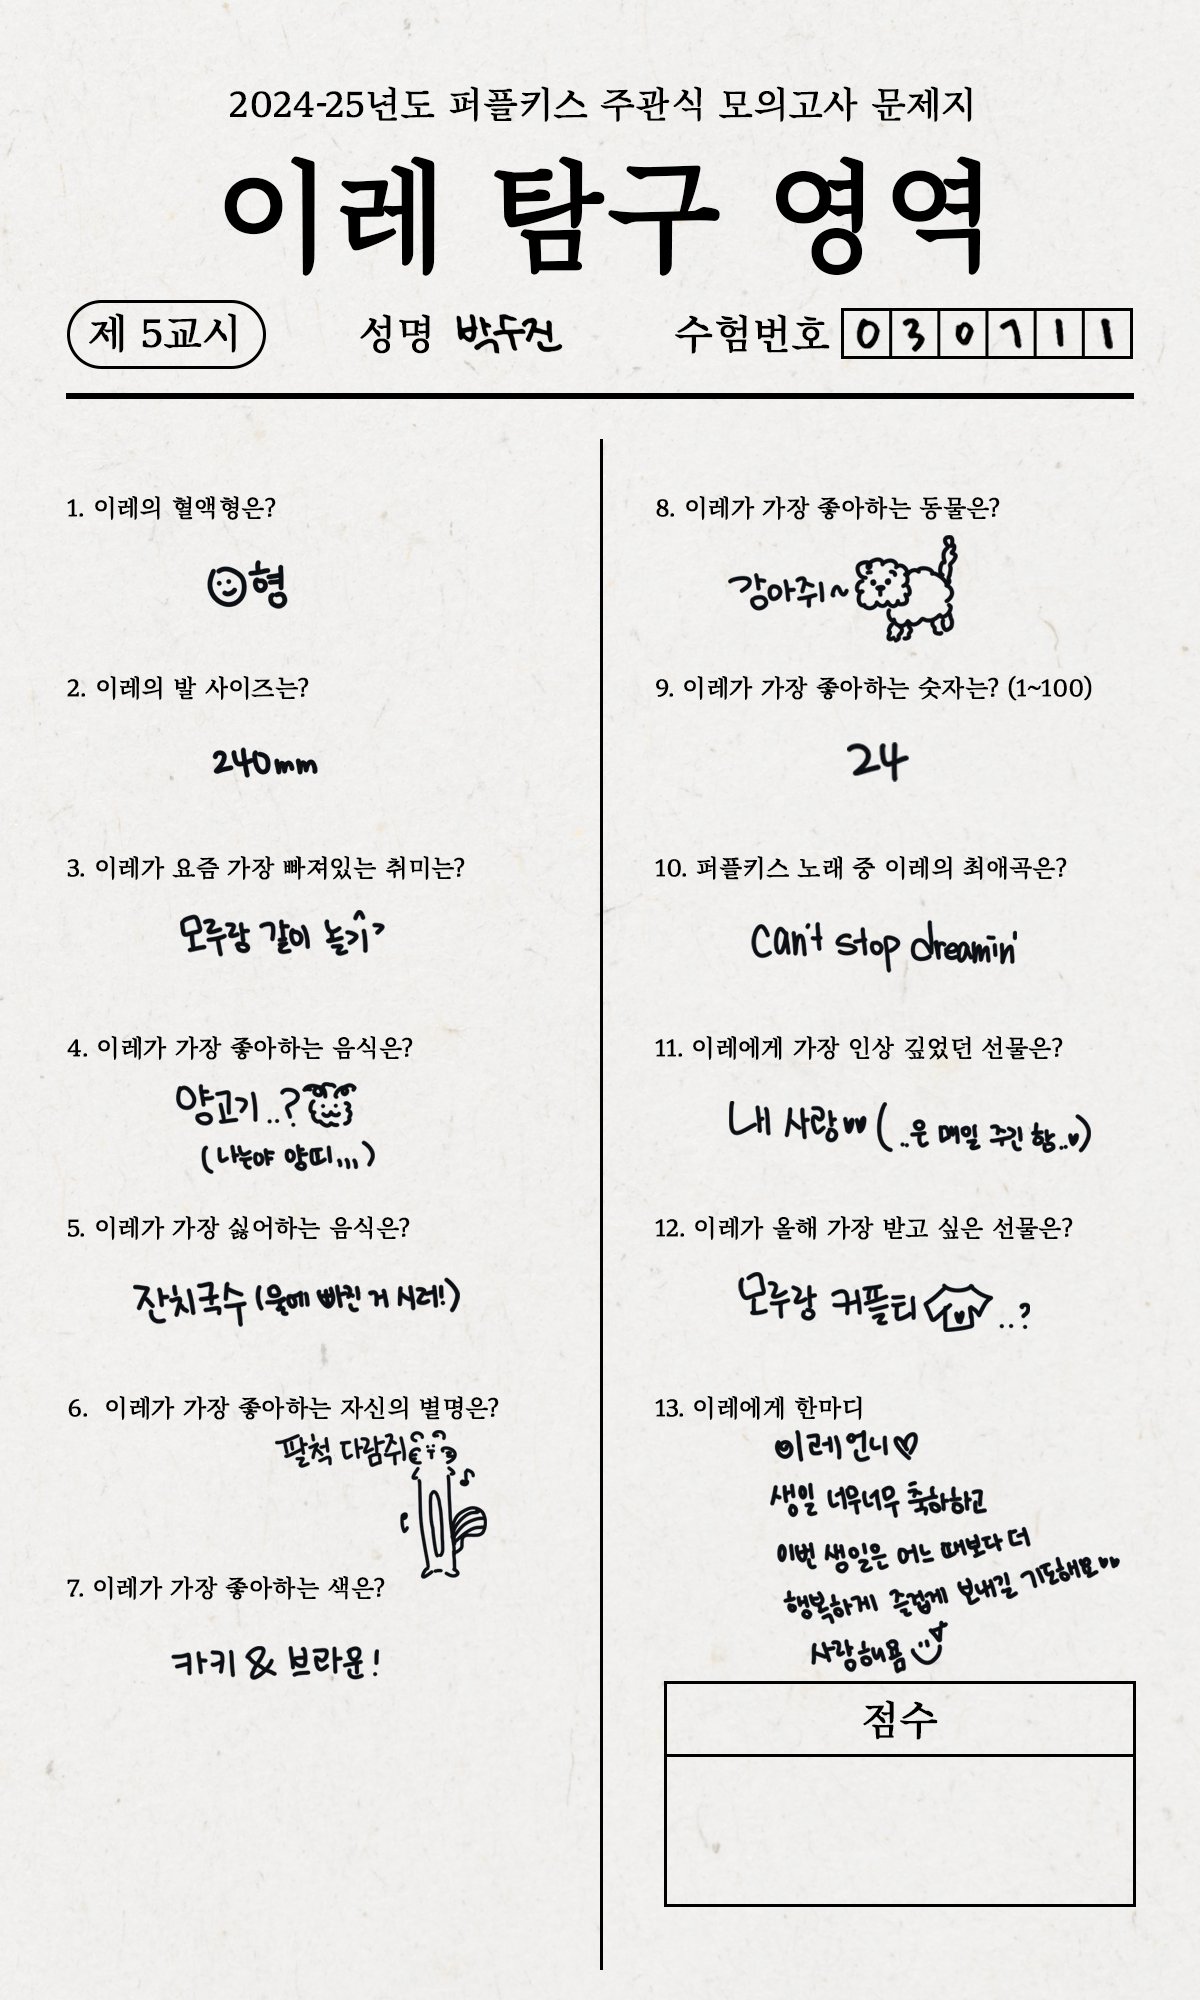 2024-25년도 퍼플키스 주관식 모의고사 문제지
이레 탐구 영역
제 5교시
성명 박두진
수험번호 030711
1. 이레의 혈액형은?
형
2. 이레의 발 사이즈는?
240mm
3. 이레가 요즘 가장 빠져있는 취미는?
모루랑 같이 놀기
4. 이레가 가장 좋아하는 음식은?
양고기..?
(나는야 양띠,,,)
5. 이레가 가장 싫어하는 음식은?
잔치국수 (물에 빠진 거 시러!)
6. 이레가 가장 좋아하는 자신의 별명은?
팔척 다람쥐
7. 이레가 가장 좋아하는 색은?
카키 & 브라운!
8. 이레가 가장 좋아하는 동물은?
강아쥐~
9. 이레가 가장 좋아하는 숫자는? (1~100)
24
10. 퍼플키스 노래 중 이레의 최애곡은?
can't stop dreamin'
11. 이레에게 가장 인상 깊었던 선물은?
내 사랑♥♥ (..은 매일 주긴 함..♥)
12. 이레가 올해 가장 받고 싶은 선물은?
모루랑 커플티 ..?
13. 이레에게 한마디
이레언니♡
생일 너무너무 축하하고
이번 생일은 어느 때보다 더
행복하게 즐겁게 보내길 기도해요♥♥
사랑해욤
점수